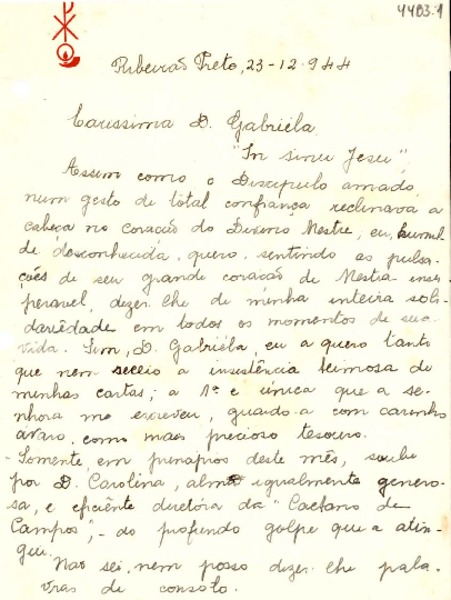 4403.1
Ribeirão Preto, 23-12-944
Carissima D. Gabriéla,
"In sinu Jesu",
Assim como o Discipulo amado,
num gesto de total confiança reclinava a
cabeça no coração do Divino Mestre, eu, humil-
de desconhecida, quero, sentindo as pulsa-
ções de seu grande coração de Mestra inse-
peravel, dizer-lhe de minha inteira soli-
dariêdade em todos os momentos de sua
vida. Sim, D. Gabriéla, eu a quero tanto
que nem receio a insistência teimosa de
minhas cartas; a 1ª e única que a se-
nhora me escreveu, guardo-a com carinho
avaro, como mais precioso tesouro.
- Somente, em principios deste mês, soube
por D. Carolina, alma igualmente genero-
sa, e eficiênte diretóra da "Caetano de
Campos", - do profundo golpe que a atin-
giu.
Não sei, nem posso dizer-lhe pala-
vras de consolo.